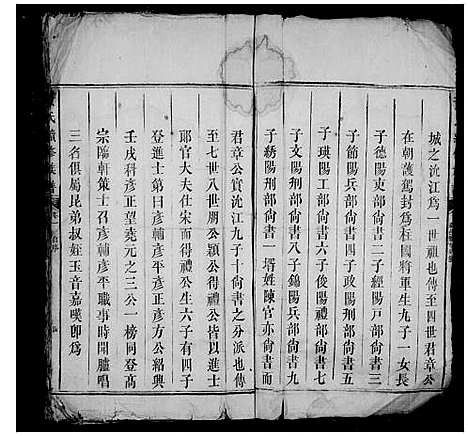 城之沇江爲一世祖也傳至四世君章公
在朝護駕封爲柱國將軍生九子一女長
子德陽吏部尚書二子經陽戸部尚書三
子節陽兵部尚書四子政陽刑部尚書五
子瑛陽工部尚書六子俊陽禮部尚書七
子文陽刑部尚書八子錦陽兵部尚書九
子綉陽刑部尚書一壻姓陳官亦尚書而
君章公實沇江九子十尚書之分派也傳
至七世八世朋公穎公得禮公皆以進士
郎官大夫仕宋而得禮公生六子有四子
登進士第曰彦輔彦平彦正彦方公紹興
壬戌科彦正望堯元之三公一榜同登高
宗臨軒策士召彦輔彦平職事時開臚唱
三名俱屬昆弟叔姪玉音嘉嘆即爲